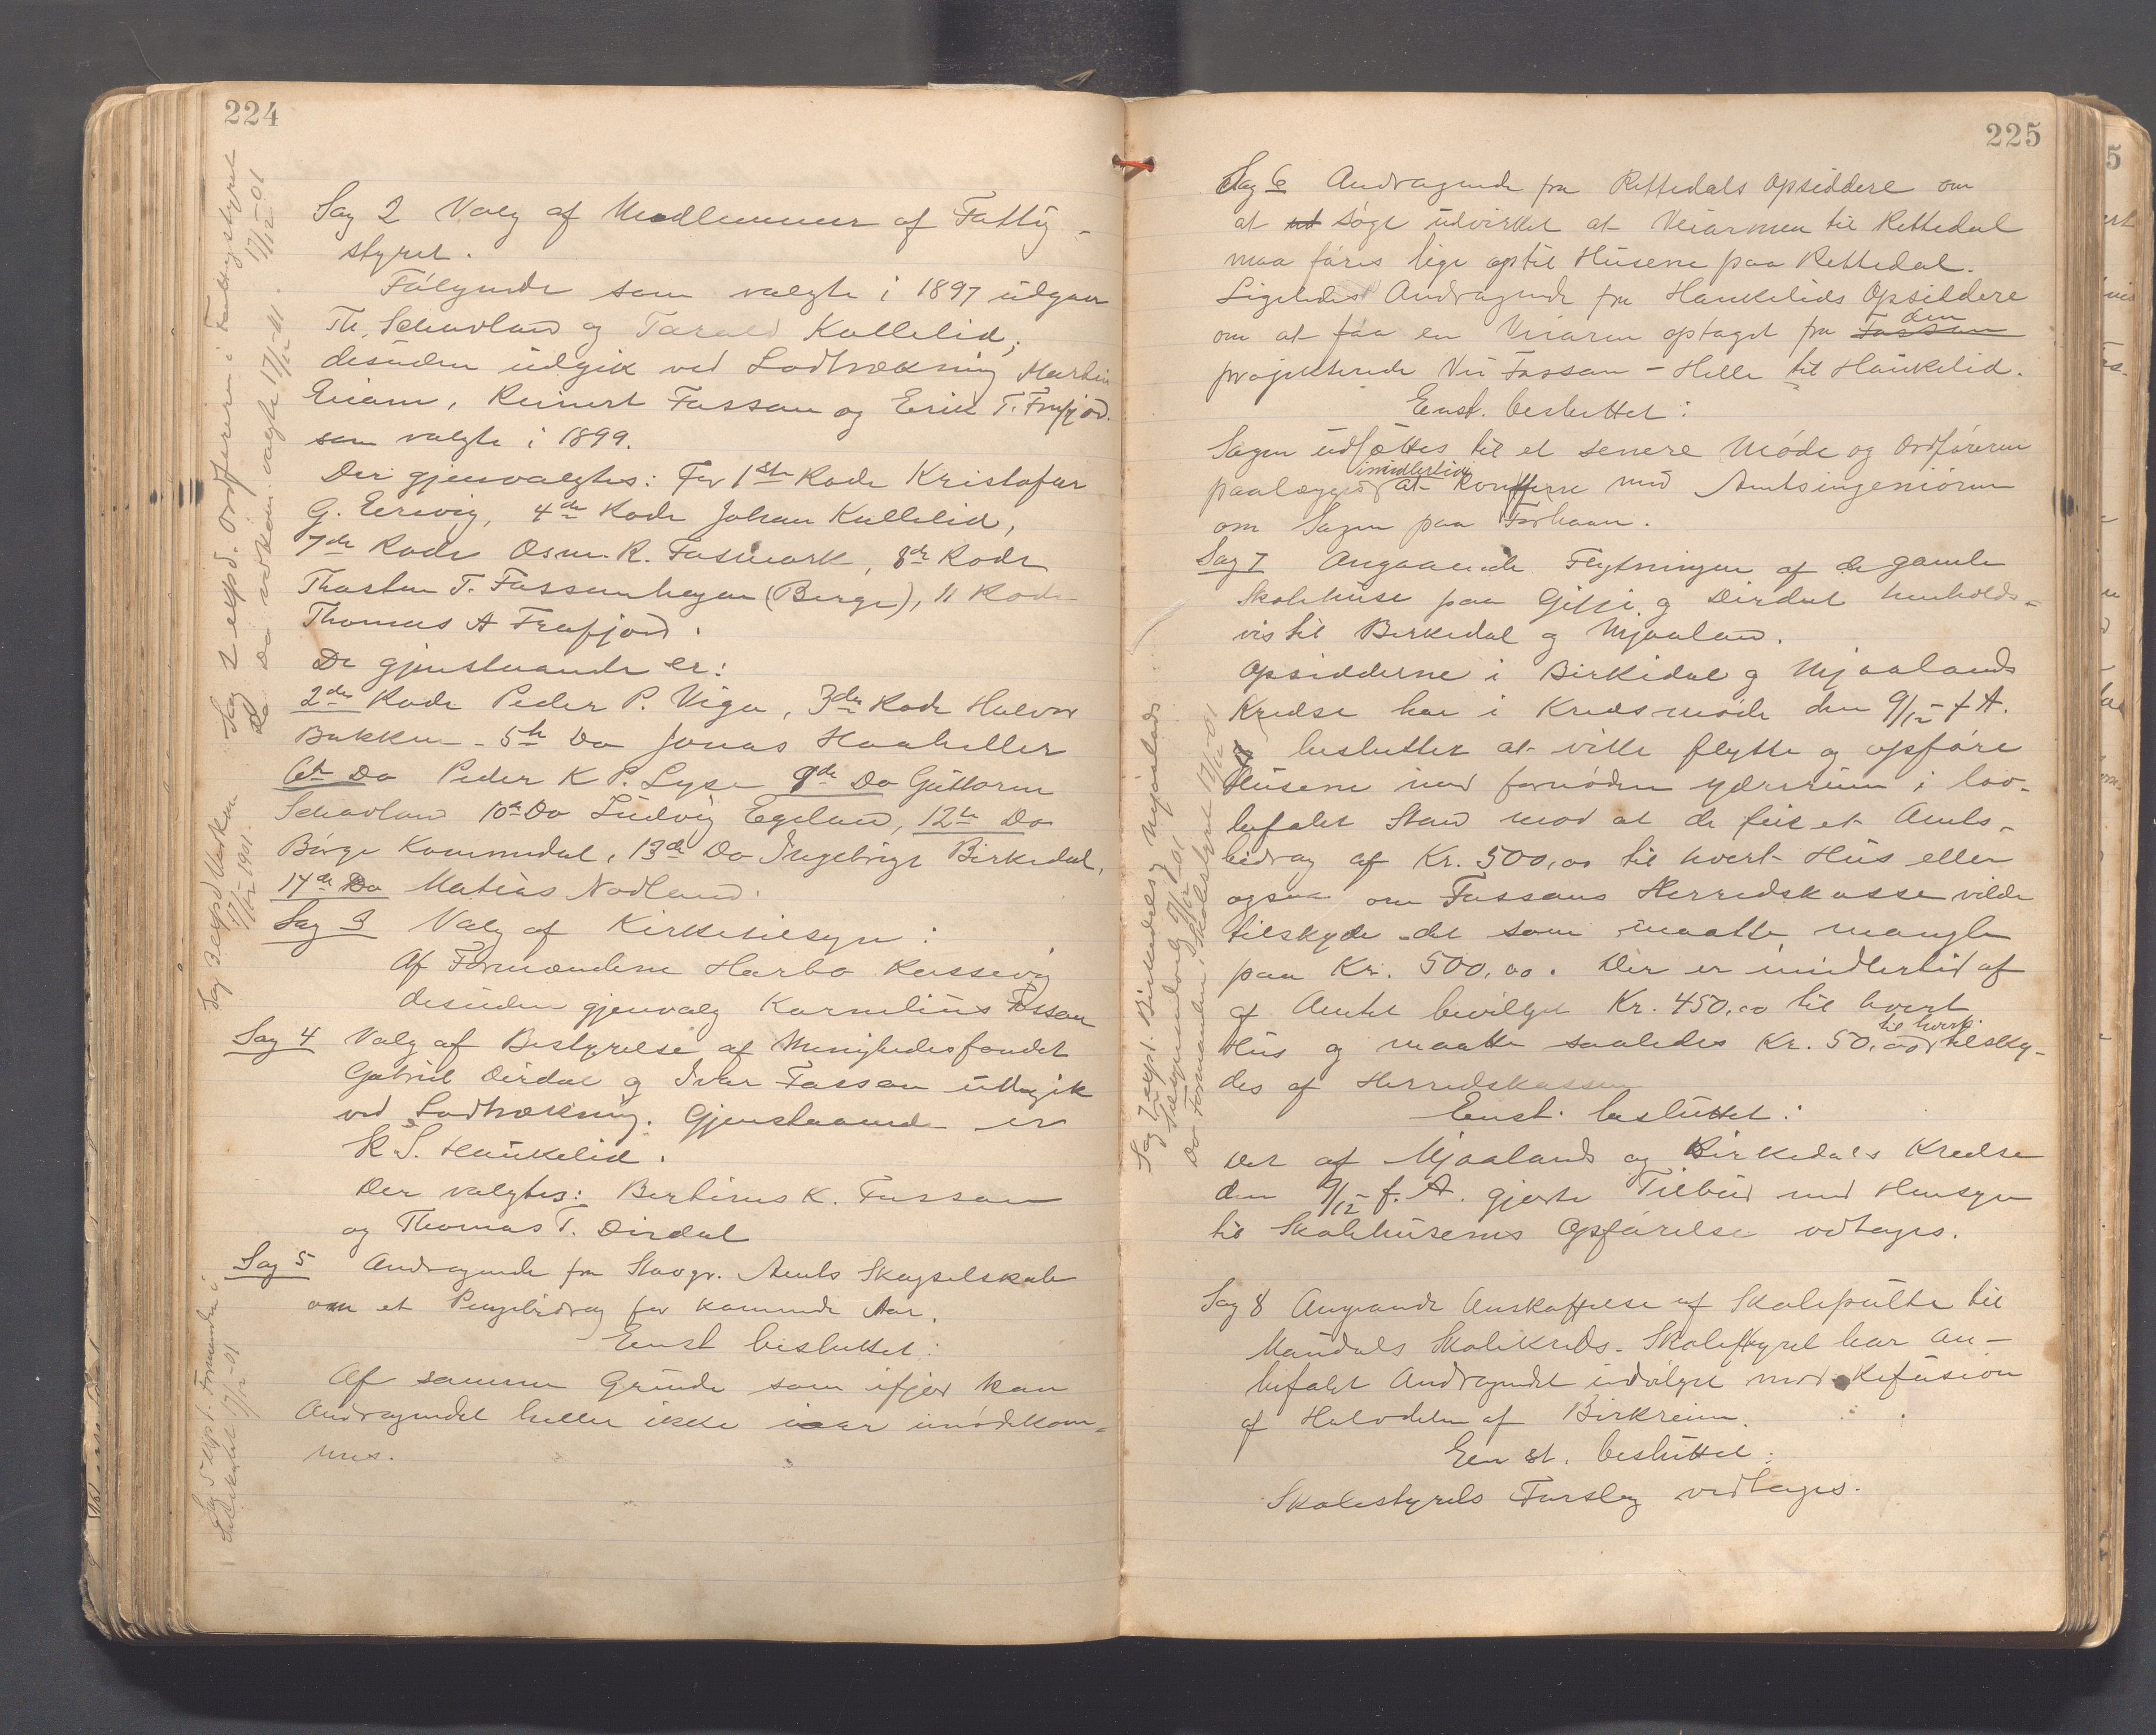 224
Sag 2 Valg af Medlemmer af Fattig-
styret.
Følgende som valgte i 1897 udgaar
Th. Schavland og Tarald Kallelid,
desuden udgik ved Lodtrækning Martin
Eiam, Reinert Fossan og Erik T. Frafjord.
som valgte i 1899.
Der gjenvalgtes: For 1ste Rode Kristofer
G. Eersvig, 4de Rode Johan Kallelid,
7de Rode Osm. R. Fosmark, 8de Rode
Thorsten T. Fossanhagen (Berge), 11 Rode
Thomas A Frafjord.
De gjenstaaende er:
2den Rode Peder P. Viga, 3die Rode Halvor
Bakken - 5te Do Jonas Haaheller
6te Do Peder K P. Lyse 9de Do Guttorm
Schavland 10de Do Ludvig Egeland, 12te Do
Børge Kommedal, 13de Do Ingebrigt Birkedal,
14de Do Matias Nodland.
Sag 3 Valg af Kirketilsyn:
Af Formændene Harbo Rossevig
desuden gjenvalg Kornelius Fossan
Sag 4 Valg af Bestyrelse af Menighedsfondet
Gabriel Dirdal og Ivar Fossan udgik
ved Lodtrækning. Gjenstaaende er
K S. Haukelid.
Der valgtes: Bertinus K. Fossan
og Thomas T. Dirdal
Sag 5 Andragende fra Stavgr. Amts Skogselskab
om et Pengebidrag for kommende Aar.
Enst besluttet:
Af samme Grunde som ifjor kan
Andragendet heller ikke iaar imødekom-
mes.
Sag 2 expd. Ordføreren i Fattigstyret 17/12-01
Do Do vedkom. valgte 17/12-01.
Sag 3 expd Verken
17/12 1901.
Sag 5 expt. Formanden i
Selskabet 17/12-01
225
Sag 6 Andragende fra Rettedals Opsiddere om
at ud søge udvirket at Veiarmen til Rettedal
maa føres lige op til Husene paa Rettedal.
Ligeledes Andragende fra Haukelids Opsiddere
om at faa en Veiarm optaget fra Fossan den
projekterede Vei Fossan - Helle til Haukelid.
Enst. besluttet:
Sagen udsættes til et senere Møde og Ordføreren
paalægges imidlertid at konferere med Amtsingeniøren
om Sagen paa Forhaan.
Sag 7 Angaaende Flytningen af de gamle
Skolehuse paa Gilje og Dirdal henholds-
vis til Birkedal og Mjaaland.
Opsidderne i Birkedal og Mjaalands
Kredse har i Kredsmøde den 9/12 f A.
besluttet at ville flytte og opføre
Husene med fornøden yderrum i lov-
befalet Stand mod at de fik et Amts-
bidrag af Kr. 500,00 til hvert Hus eller
ogsaa om Fossans Herredskasse vilde
tilskyde det som maatte mangle
paa Kr. 500,00. Der er imidlertid af
af Amtet bevilget Kr. 450,00 til hvert
Hus og maatte saaledes Kr. 50,00 til hvert tilsky-
des af Herredskassen
Enst. besluttet:
Det af Mjaalands og Birkedals Kredse
den 9/12 f. A. gjorte Tilbud med Hensyn
til Skolehusenes Opførelse vedtages.
Sag 8 Angaaende Anskaffelse af Skolepulte til
Maudals Skolekreds. Skolestyret har an-
befalet Andragendet indvilget mod Refusion
af Halvdelen af Birkreim.
Een st. besluttet:
Skolestyrets Forslag vedtages.
Sag 7 expt. Birkedals og Mjaalands
Tilsynsudvalg 17/12 01
Do Formanden i Skolestyret 17/12-01